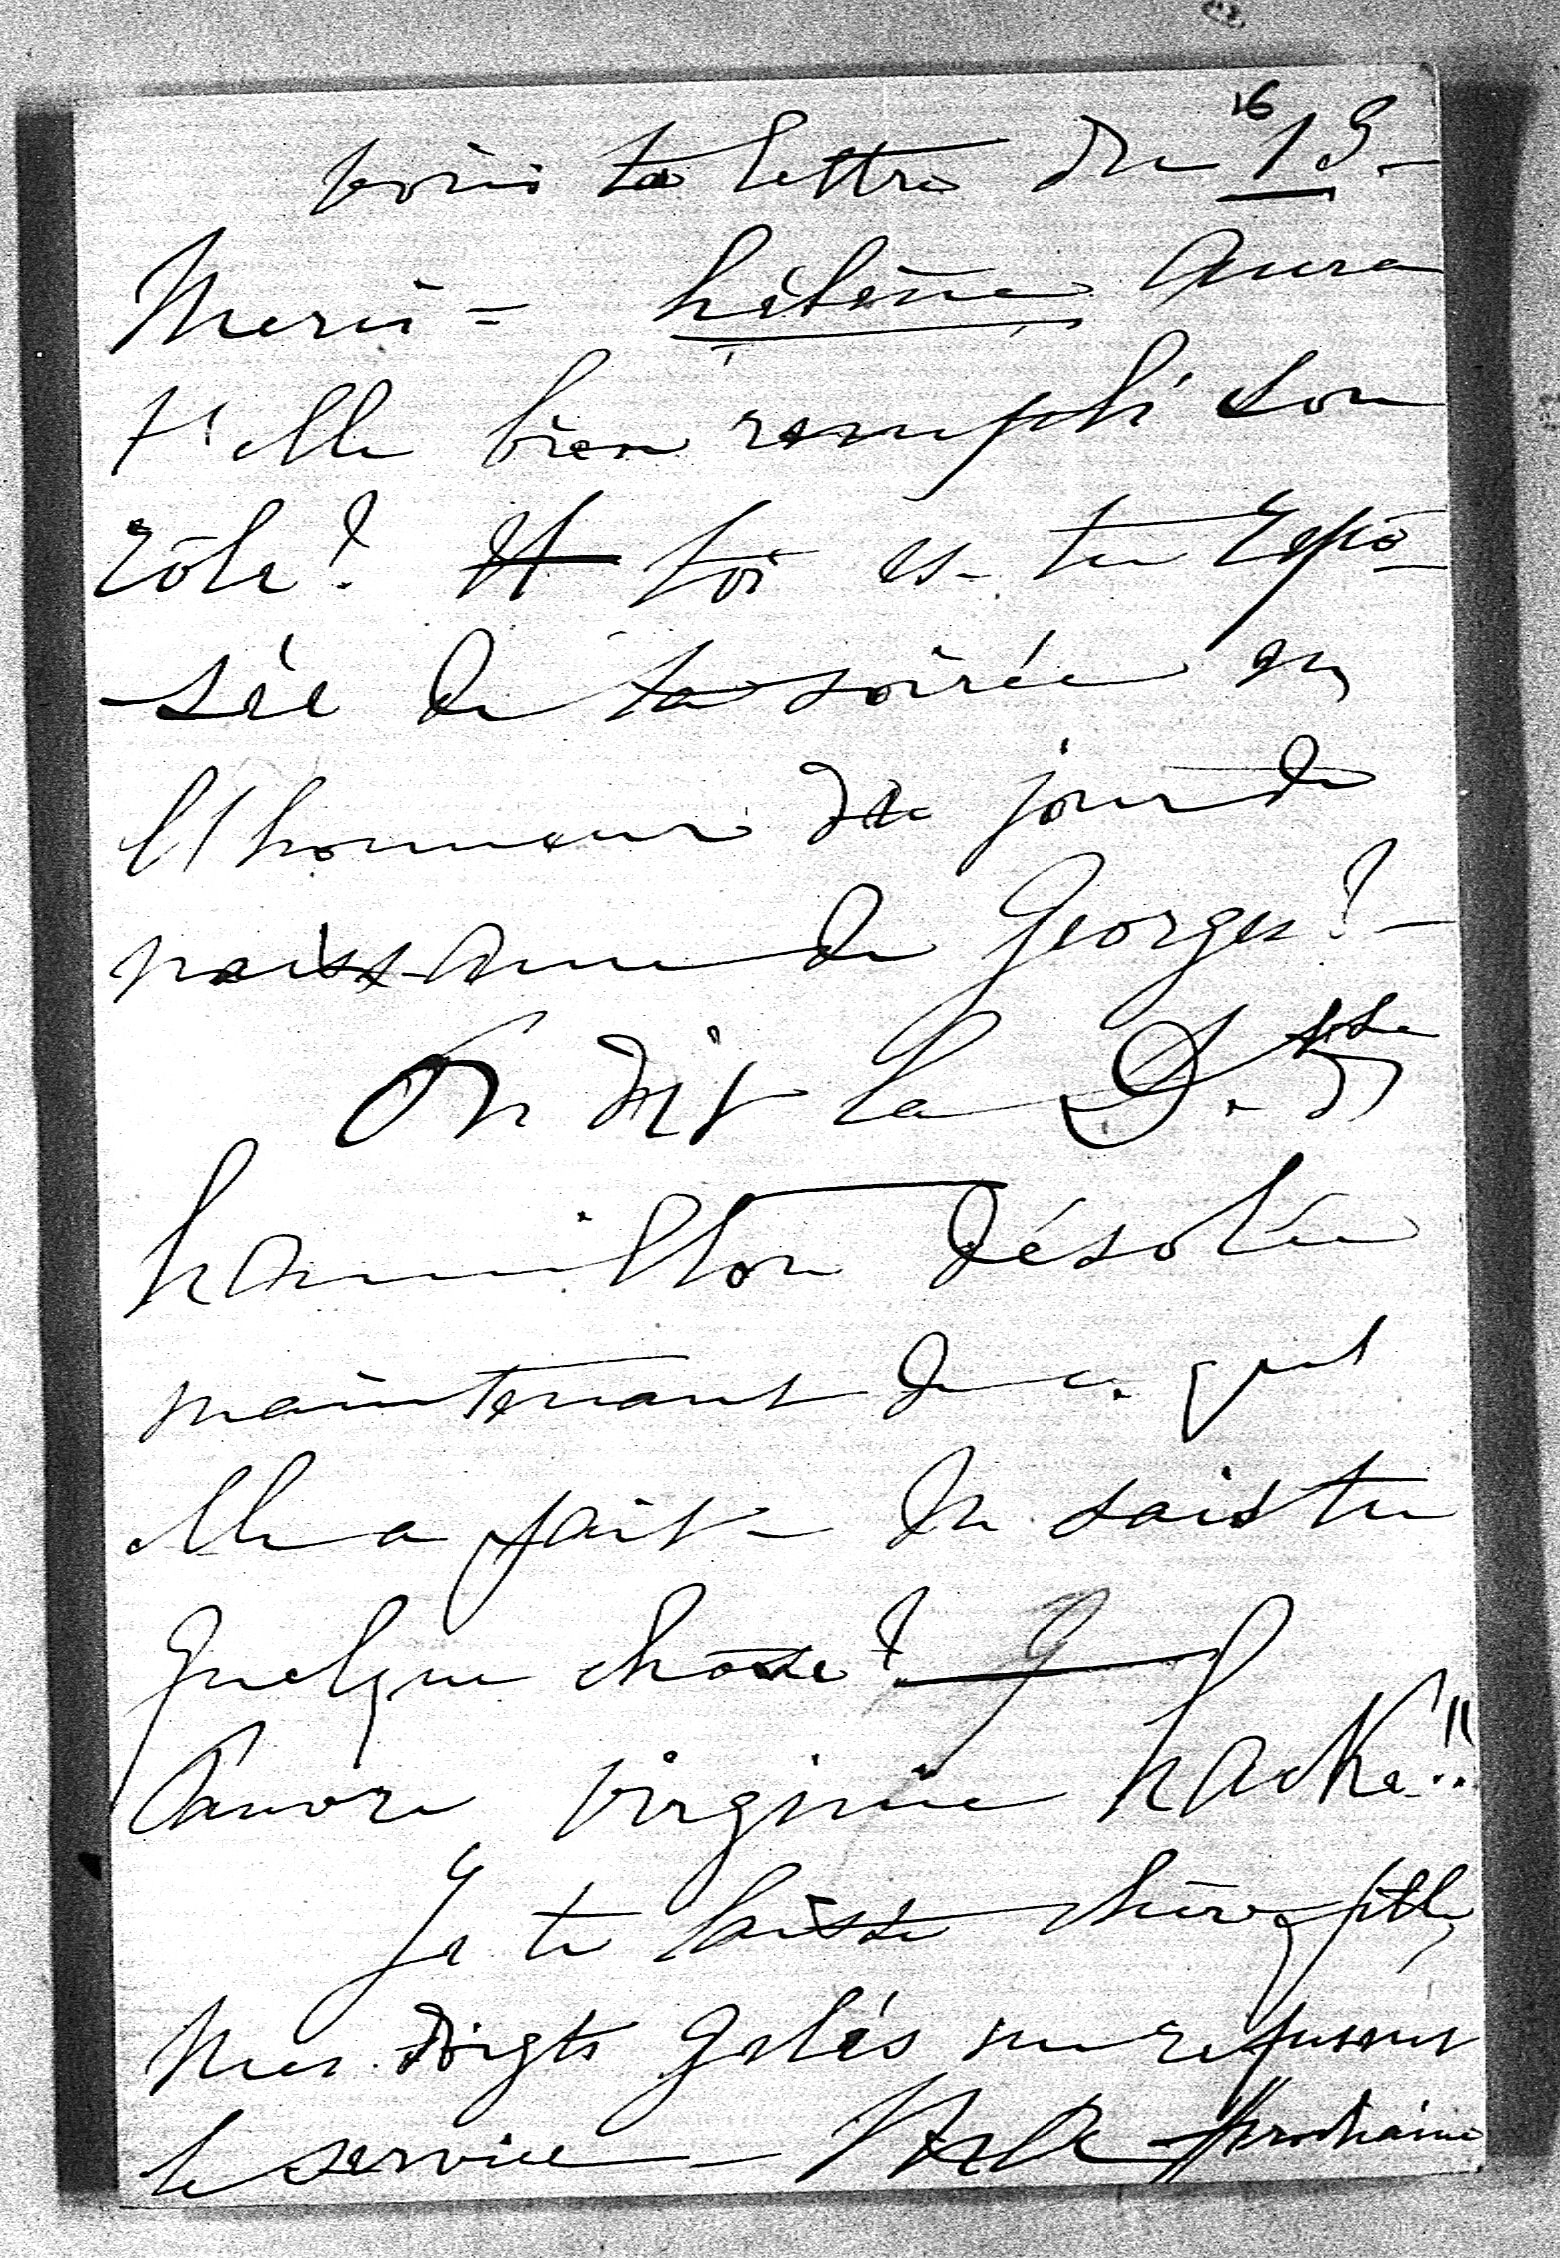 16
voici ta lettre du 13 -
Merci = hélène aura
t'elle bien rempli son
rôle? Et toi es-tu repo-
sée de ta soirée en
l'honneur du jour de
naissance de Georges? -
On dit la D.sse
hamilton désolée
maintenant de ce qu'
elle a fait - En sais tu
quelque chose? -
Pauvre virginie hacke!!
Je te laisse chère fille,
Mes doigts gelés me refusent
le service - prochaine